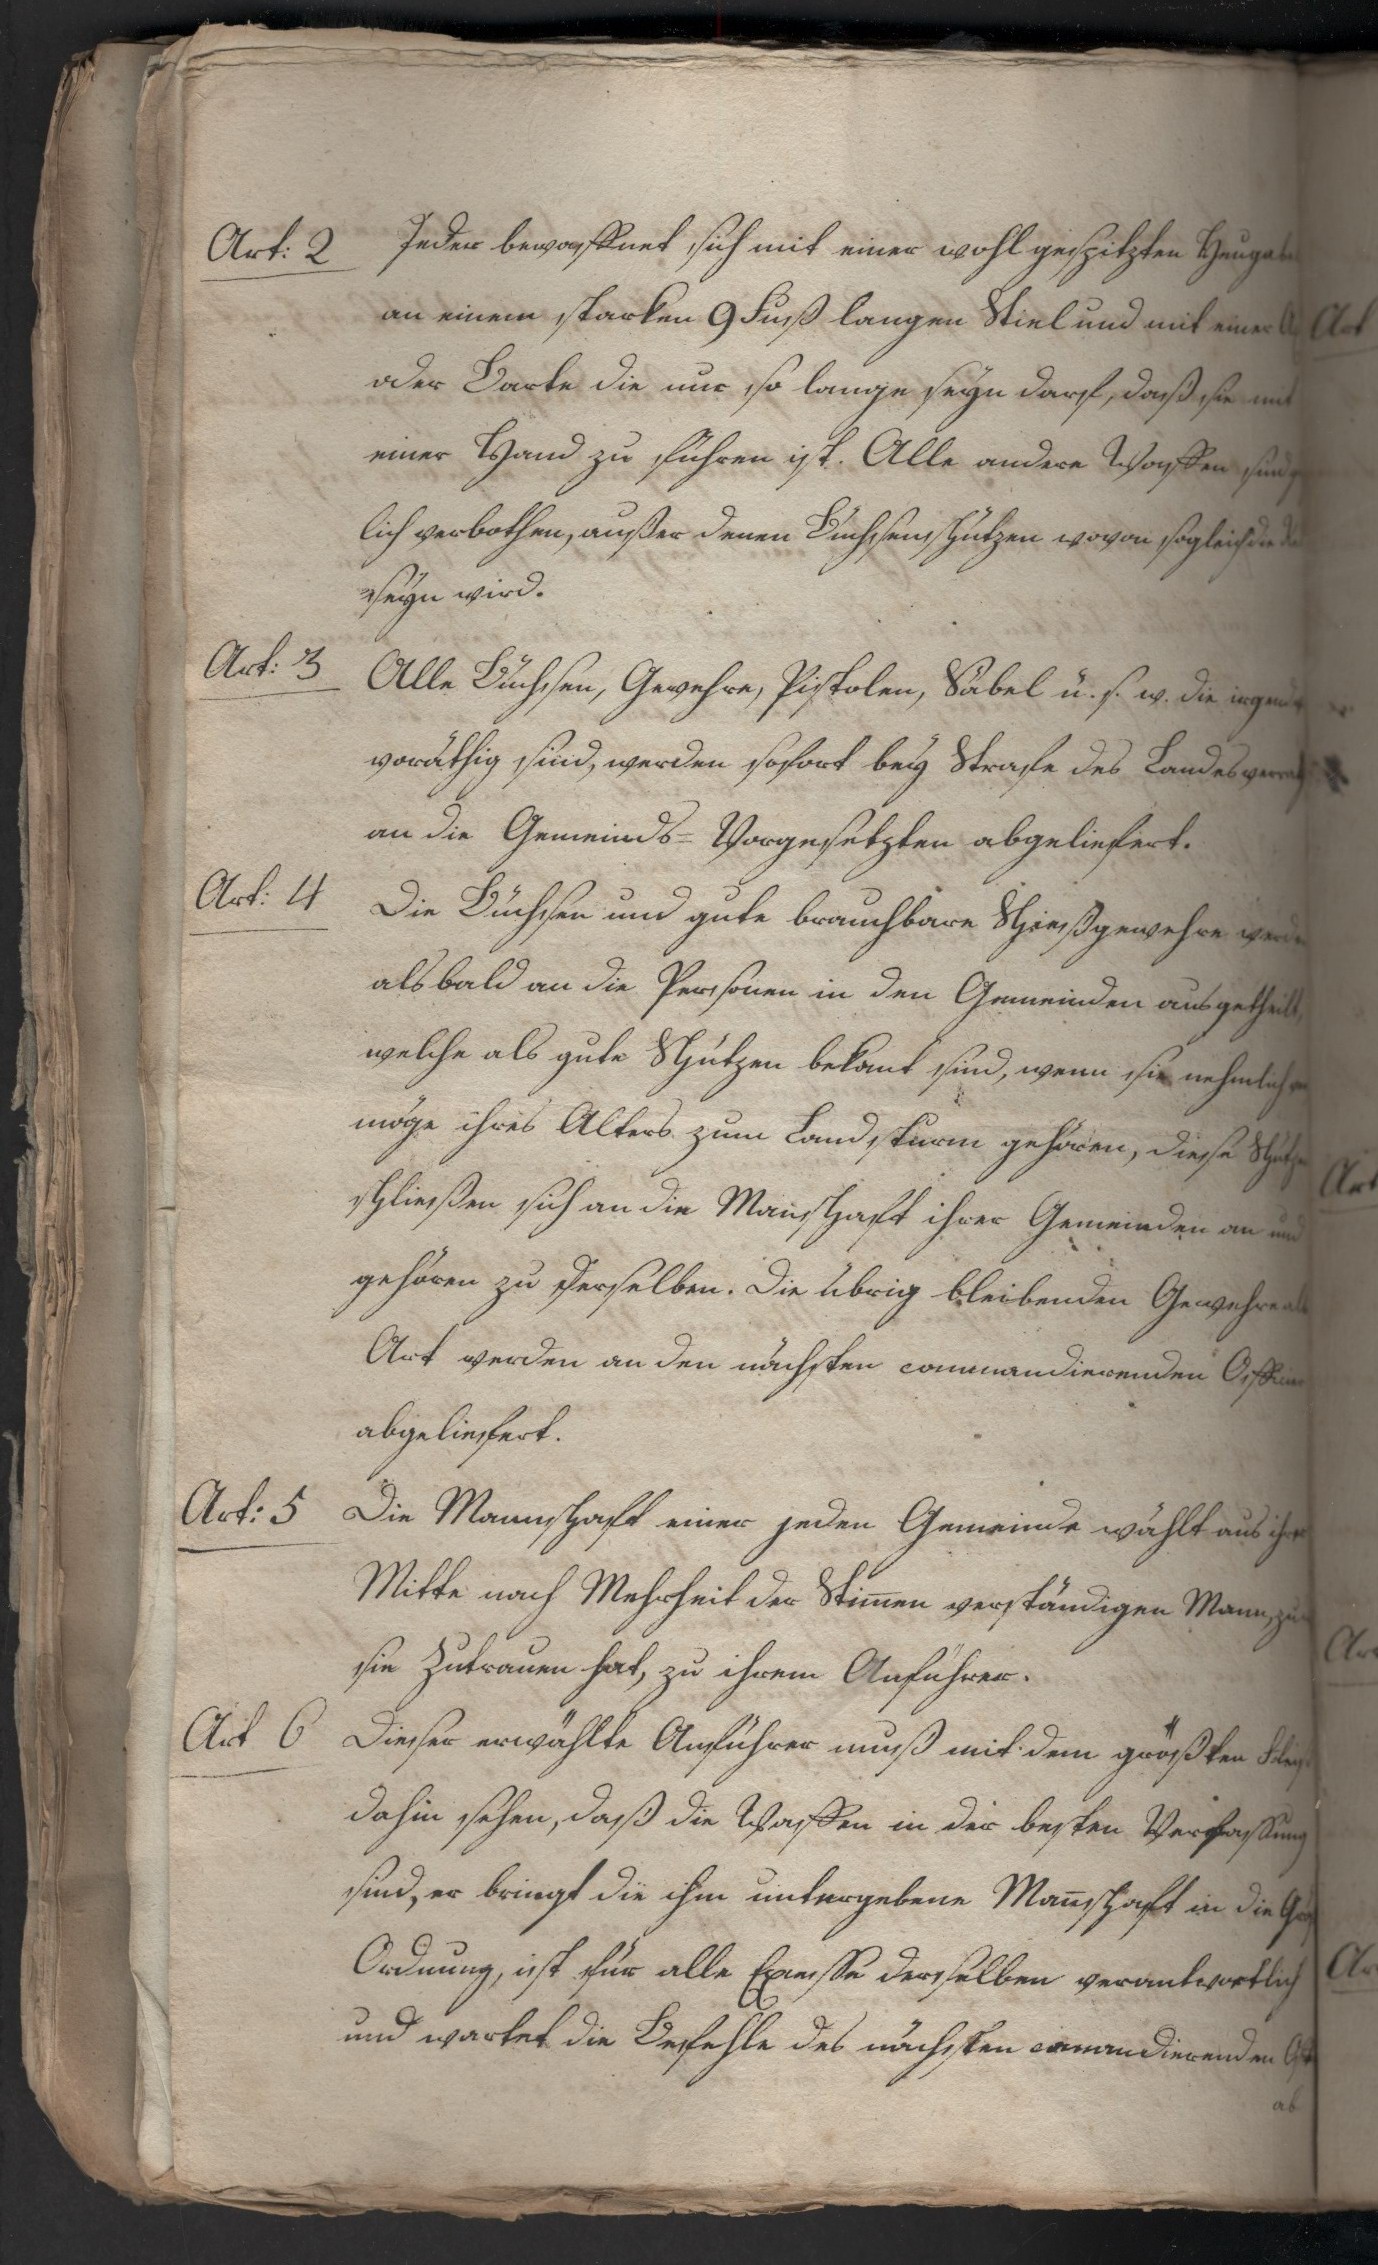 Art: 2 Jeder bewaffnet sich mit einer wohl gespitzten Heugab
an einem starken 9 Fuß langen Stiel und mit einer
oder Barte die nur so lange seyn darf, daß sie mit
einer Hand zu führen ist. Alle andere Waffen sind
lich verbothen, außer denen Büchsenschützen wovon sogleich die
seyn wird.
Art: 3 Alle Büchsen, Gewehre, Pistolen, Säbel u. s. w. die irgend
voräthig sind, werden sofort bey Strafe des Landesverrath
an die Gemeinds- Vorgesetzten abgeliefert.
Art: 4 Die Büchsen und gute brauchbare Schießgewehre werden
alsbald an die Personen in den Gemeinden ausgetheilt,
welche als gute Schützen bekant sind, wenn sie nehmlich
möge ihres Alters zum Landsturm gehören, diese Schützen
schließen sich an die Manschaft ihrer Gemeinden an und
gehören zu derselben. Die übrig bleibenden Gewehre
Art werden an den nächsten commandierenden Offizier
abgeliefert.
Art: 5 Die Mannschaft einer jeden Gemeinde wählt aus ihrer
Mitte nach Mehrheit der Stimen verständigen Mann, zu
sie Zutrauen hat, zu ihrem Anführer.
Art 6 Dieser erwählte Anführer muß mit dem größten
dahin sehen, daß die Waffen in der besten Verfassung
sind, er bringt die ihm untergebene Manschaft in die
Ordnung, ist für alle Excesse derselben verantwortlich
und wartet die Befehle des nächsten comandierenden
ab